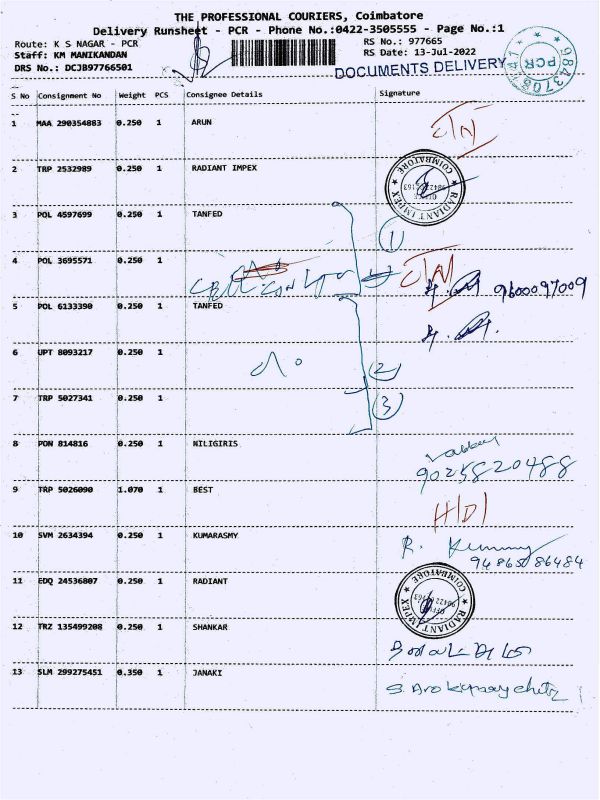 THE PROFESSIONAL COURIERS, Coimbatore
Delivery Runsheet - PCR - Phone No.:0422-3505555 - Page No.:1
Route: K S NAGAR - PCR RS No.: 977665
Staff: KM MANIKANDAN RS Date: 13-Jul-2022
DRS No.: DCJB97766501 DOCUMENTS DELIVERY
PCR
S No Consignment No Weight PCS Consignee Details Signature
1 MAA 290354883 0.250 1 ARUN
2 TRP 2532989 0.250 1 RADIANT IMPEX
COIMBATORE ★ RADIANT IMPEX ★
3 POL 4597699 0.250 1 TANFED
1
4 POL 3695571 0.250 1
9600097009
5 POL 6133390 0.250 1 TANFED
6 UPT 8093217 0.250 1
2
7 TRP 5027341 0.250 1
3
8 PON 814816 0.250 1 NILIGIRIS
9025820488
9 TRP 5026090 1.070 1 BEST
H/D/
10 SVM 2634394 0.250 1 KUMARASMY
R.
9486586484
11 EDQ 24536807 0.250 1 RADIANT
COIMBATORE ★ RADIANT IMPEX ★
12 TRZ 135499208 0.250 1 SHANKAR
13 SLM 299275451 0.350 1 JANAKI